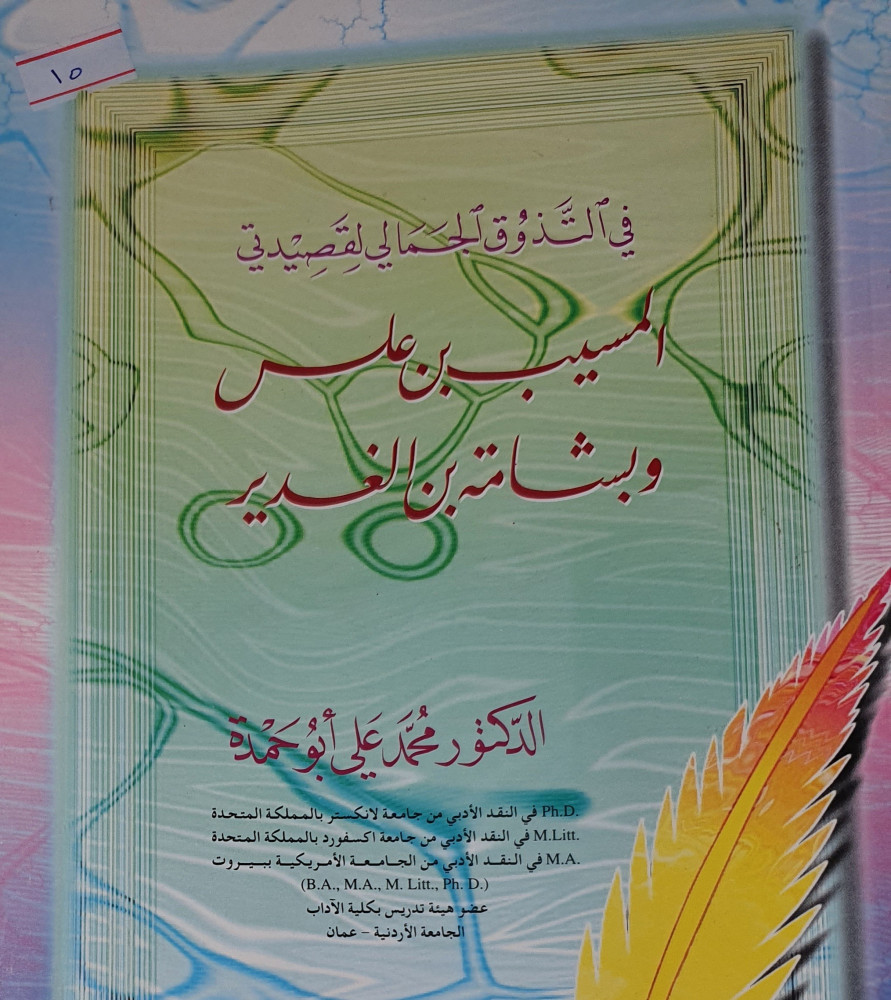 ١٥
في ٱلتَّذوُق ٱلجَمَالي لِقَصِيْدتي
المسيب بن علس
وبشامة بن الغدير
الدّكتور محُمَّد عَلي أبُو حَمْدة
Ph.D. في النقد الأدبي من جامعة لانكستر بالمملكة المتحدة
M.Litt. في النقد الأدبي من جامعة اكسفورد بالمملكة المتحدة
M.A. في النقـد الأدبي من الجامـعـة الأمريكيـة ببيـروت
(B.A., M.A., M. Litt., Ph. D.)
عضو هيئة تدريس بكلية الآداب
الجامعة الأردنية – عمان